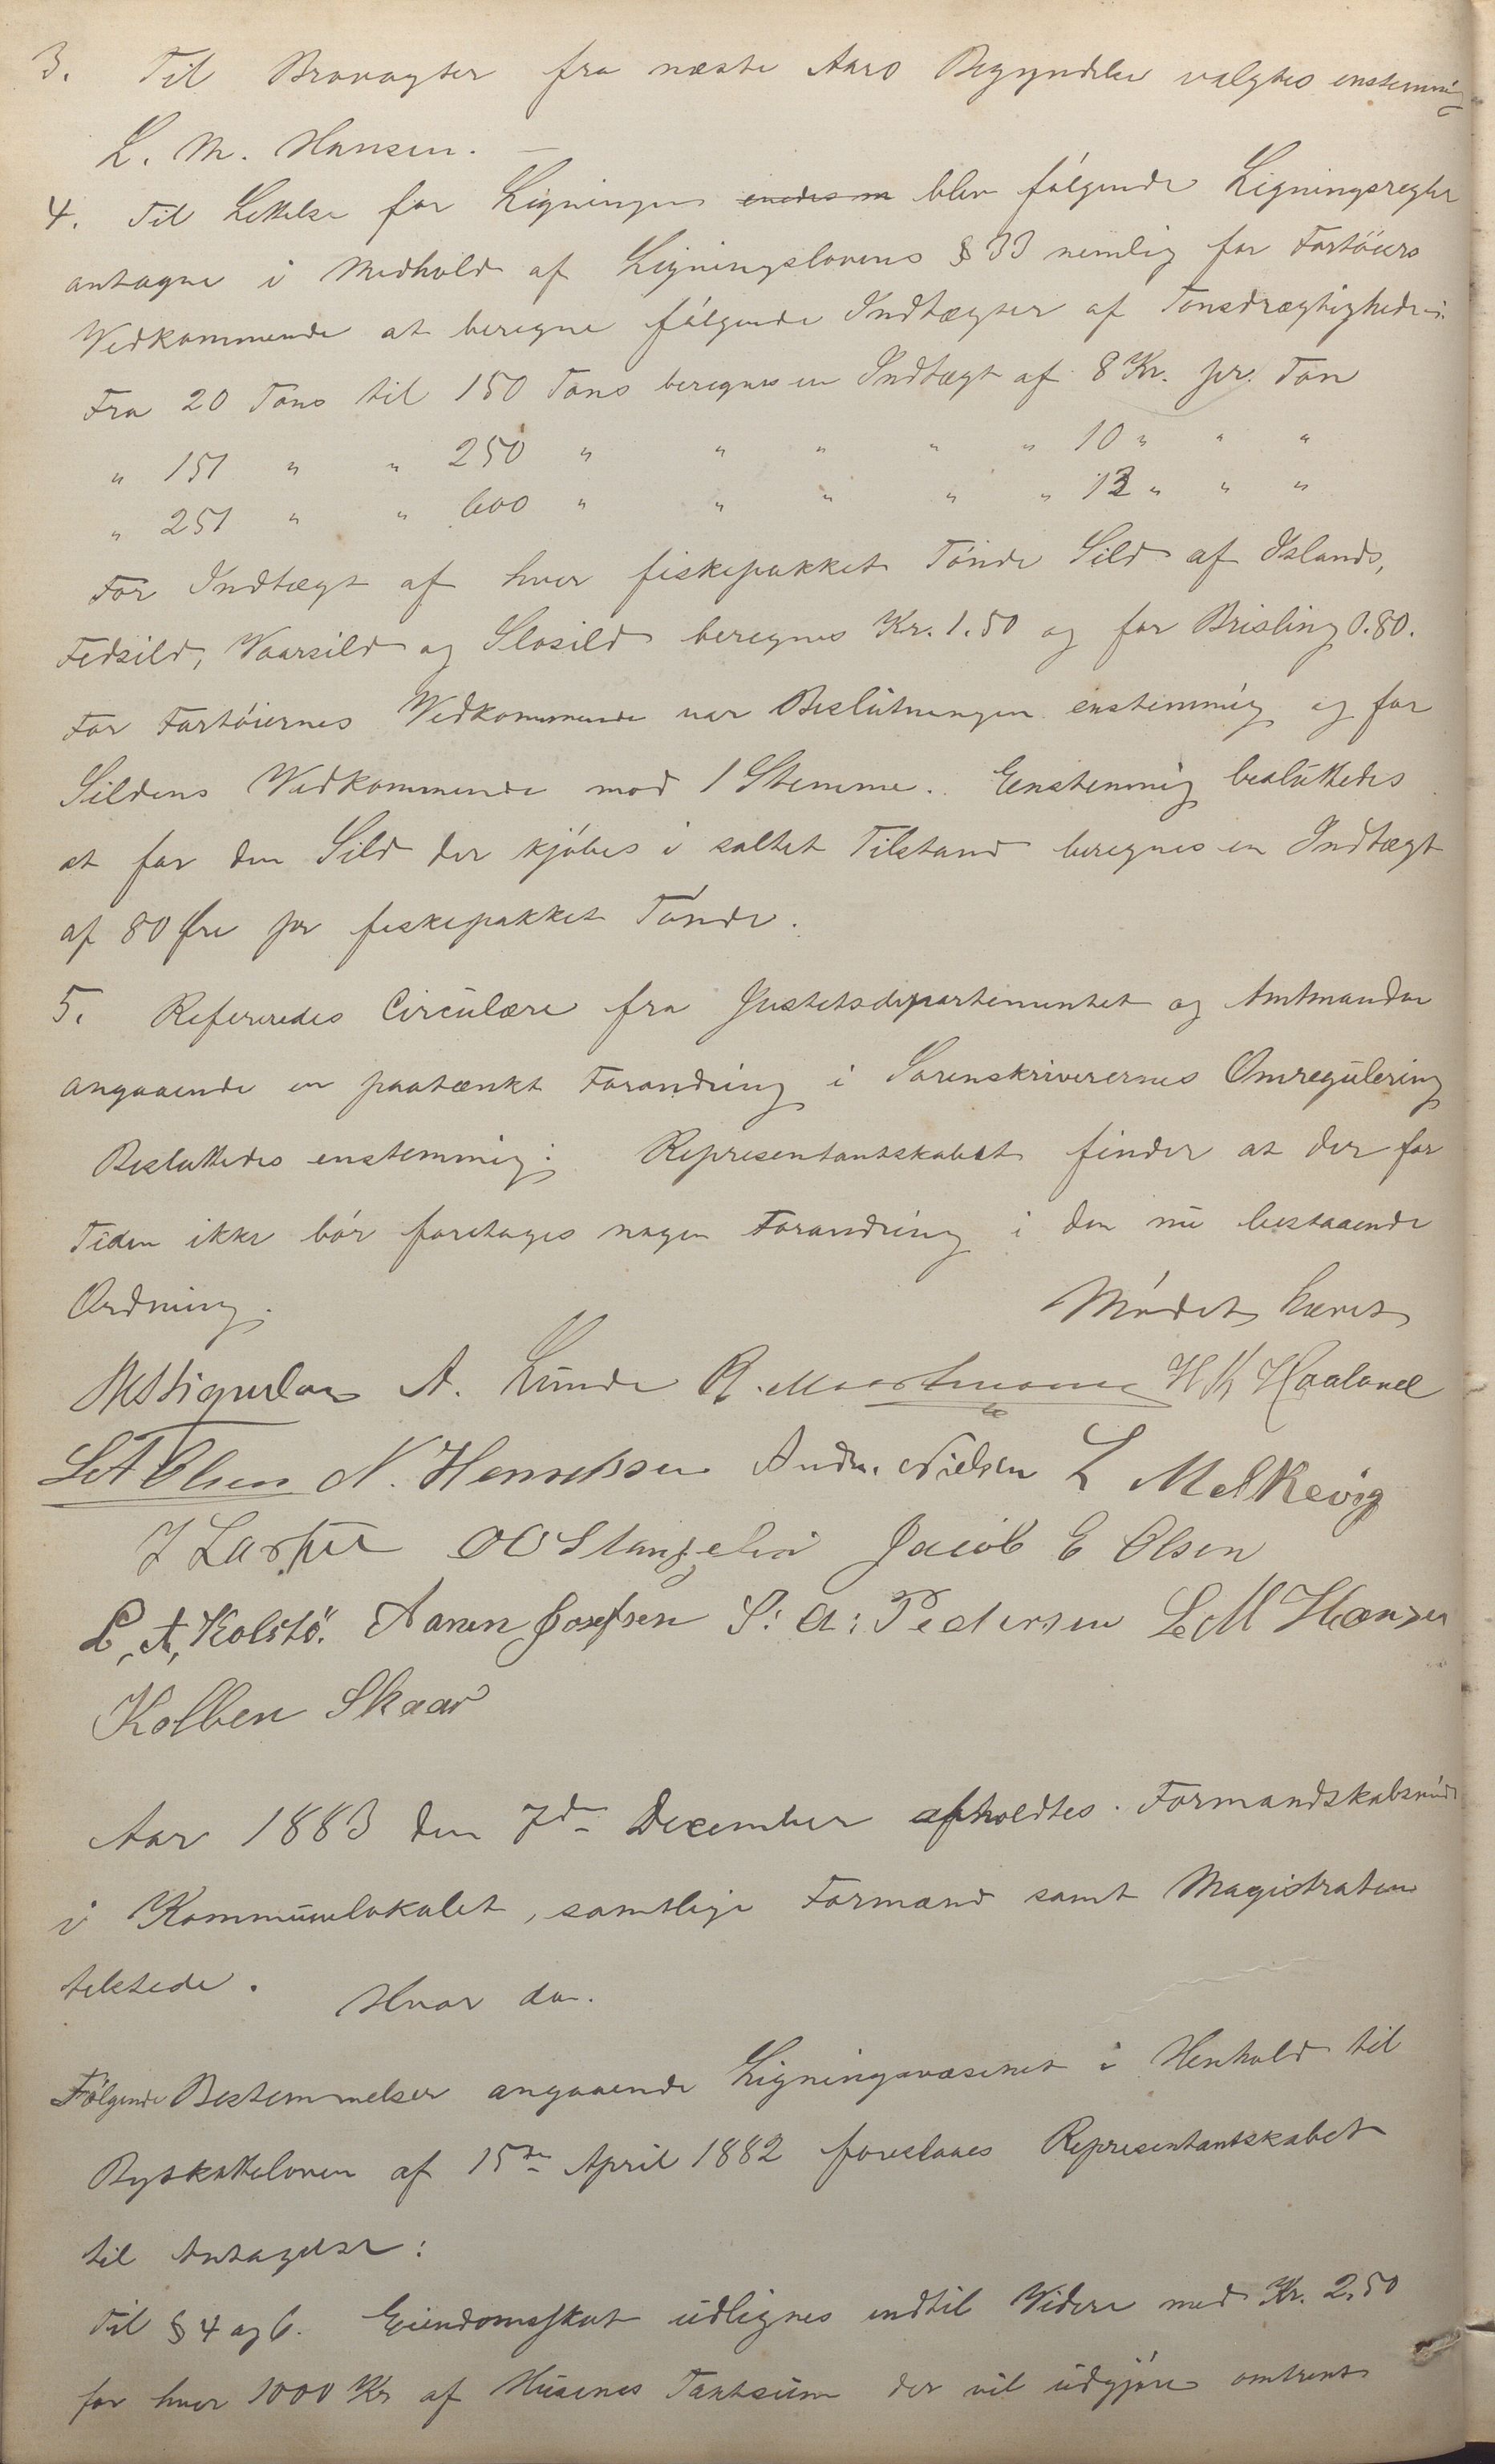 3. Til Brovagter fra næste Aars Begyndelse valgtes enstemmig
L. M. Hansen. —
4. Til Lettelse for Ligningen blev følgende Ligningsregler
antagne i Medhold af Ligningslovens § 33 nemlig for Fartöiers
Vedkommende at beregne følgende Indtægter af Tonsdrægtigheden:
Fra 20 Tons til 150 Tons beregnes en Indtægt af 8 Kr. pr. Ton
" 151 " " 250 " " " " " 10 " " "
" 251 " " 600 " " " " " 12 " " "
For Indtægt af hver fiskepakket Tønde Sild af Islands,
Fedsild, Vaarsild og Slosild beregnes Kr. 1.50 og for Brisling 0.80.
For Fartøiernes Vedkommende var Beslutningen enstemmig og for
Sildens Vedkommende mod 1 Stemme. Eenstemmig besluttedes
at for den Sild der kjøbes i saltet Tilstand beregnes en Indtægt
af 80 Øre pr fiskepakket Tønde.
5. Refereredes Circulære fra Justitsdepartementet og Amtmanden
angaaende en paatænkt Forandring i Sorenskriverernes Omregulering
Besluttedes enstemmig: Representantskabet finder at der for
Tiden ikke bør foretages nogen Forandring i den nu bestaaende
Ordning. Mødet hævet
A. Lunde H. Haaland
L A Olsen N. Henrichsen Andr. Nielsen L Melkevig
O Stangeland Jacob E Olsen
L. A. Kolstö. Aanen Josefsen S. A. Pedersen L M Hansen
Kolben Skaar
Aar 1883 den 7de December afholdtes Formandskabsmøde
i Kommunelokalet, samtlige Formænd samt Magistraten
tilstede. Hvor da.
Følgende Bestemmelser angaaende Ligningsvæsenet i Henhold til
Byskatteloven af 15de April 1882 foreslaaes Representantskabet
til Antagelse:
Til § 4 og 6. Eiendomsskat udlignes indtil Videre med Kr. 2.50
for hver 1000 Kr af Husenes Taxtsum der vil udgjøre omtrent